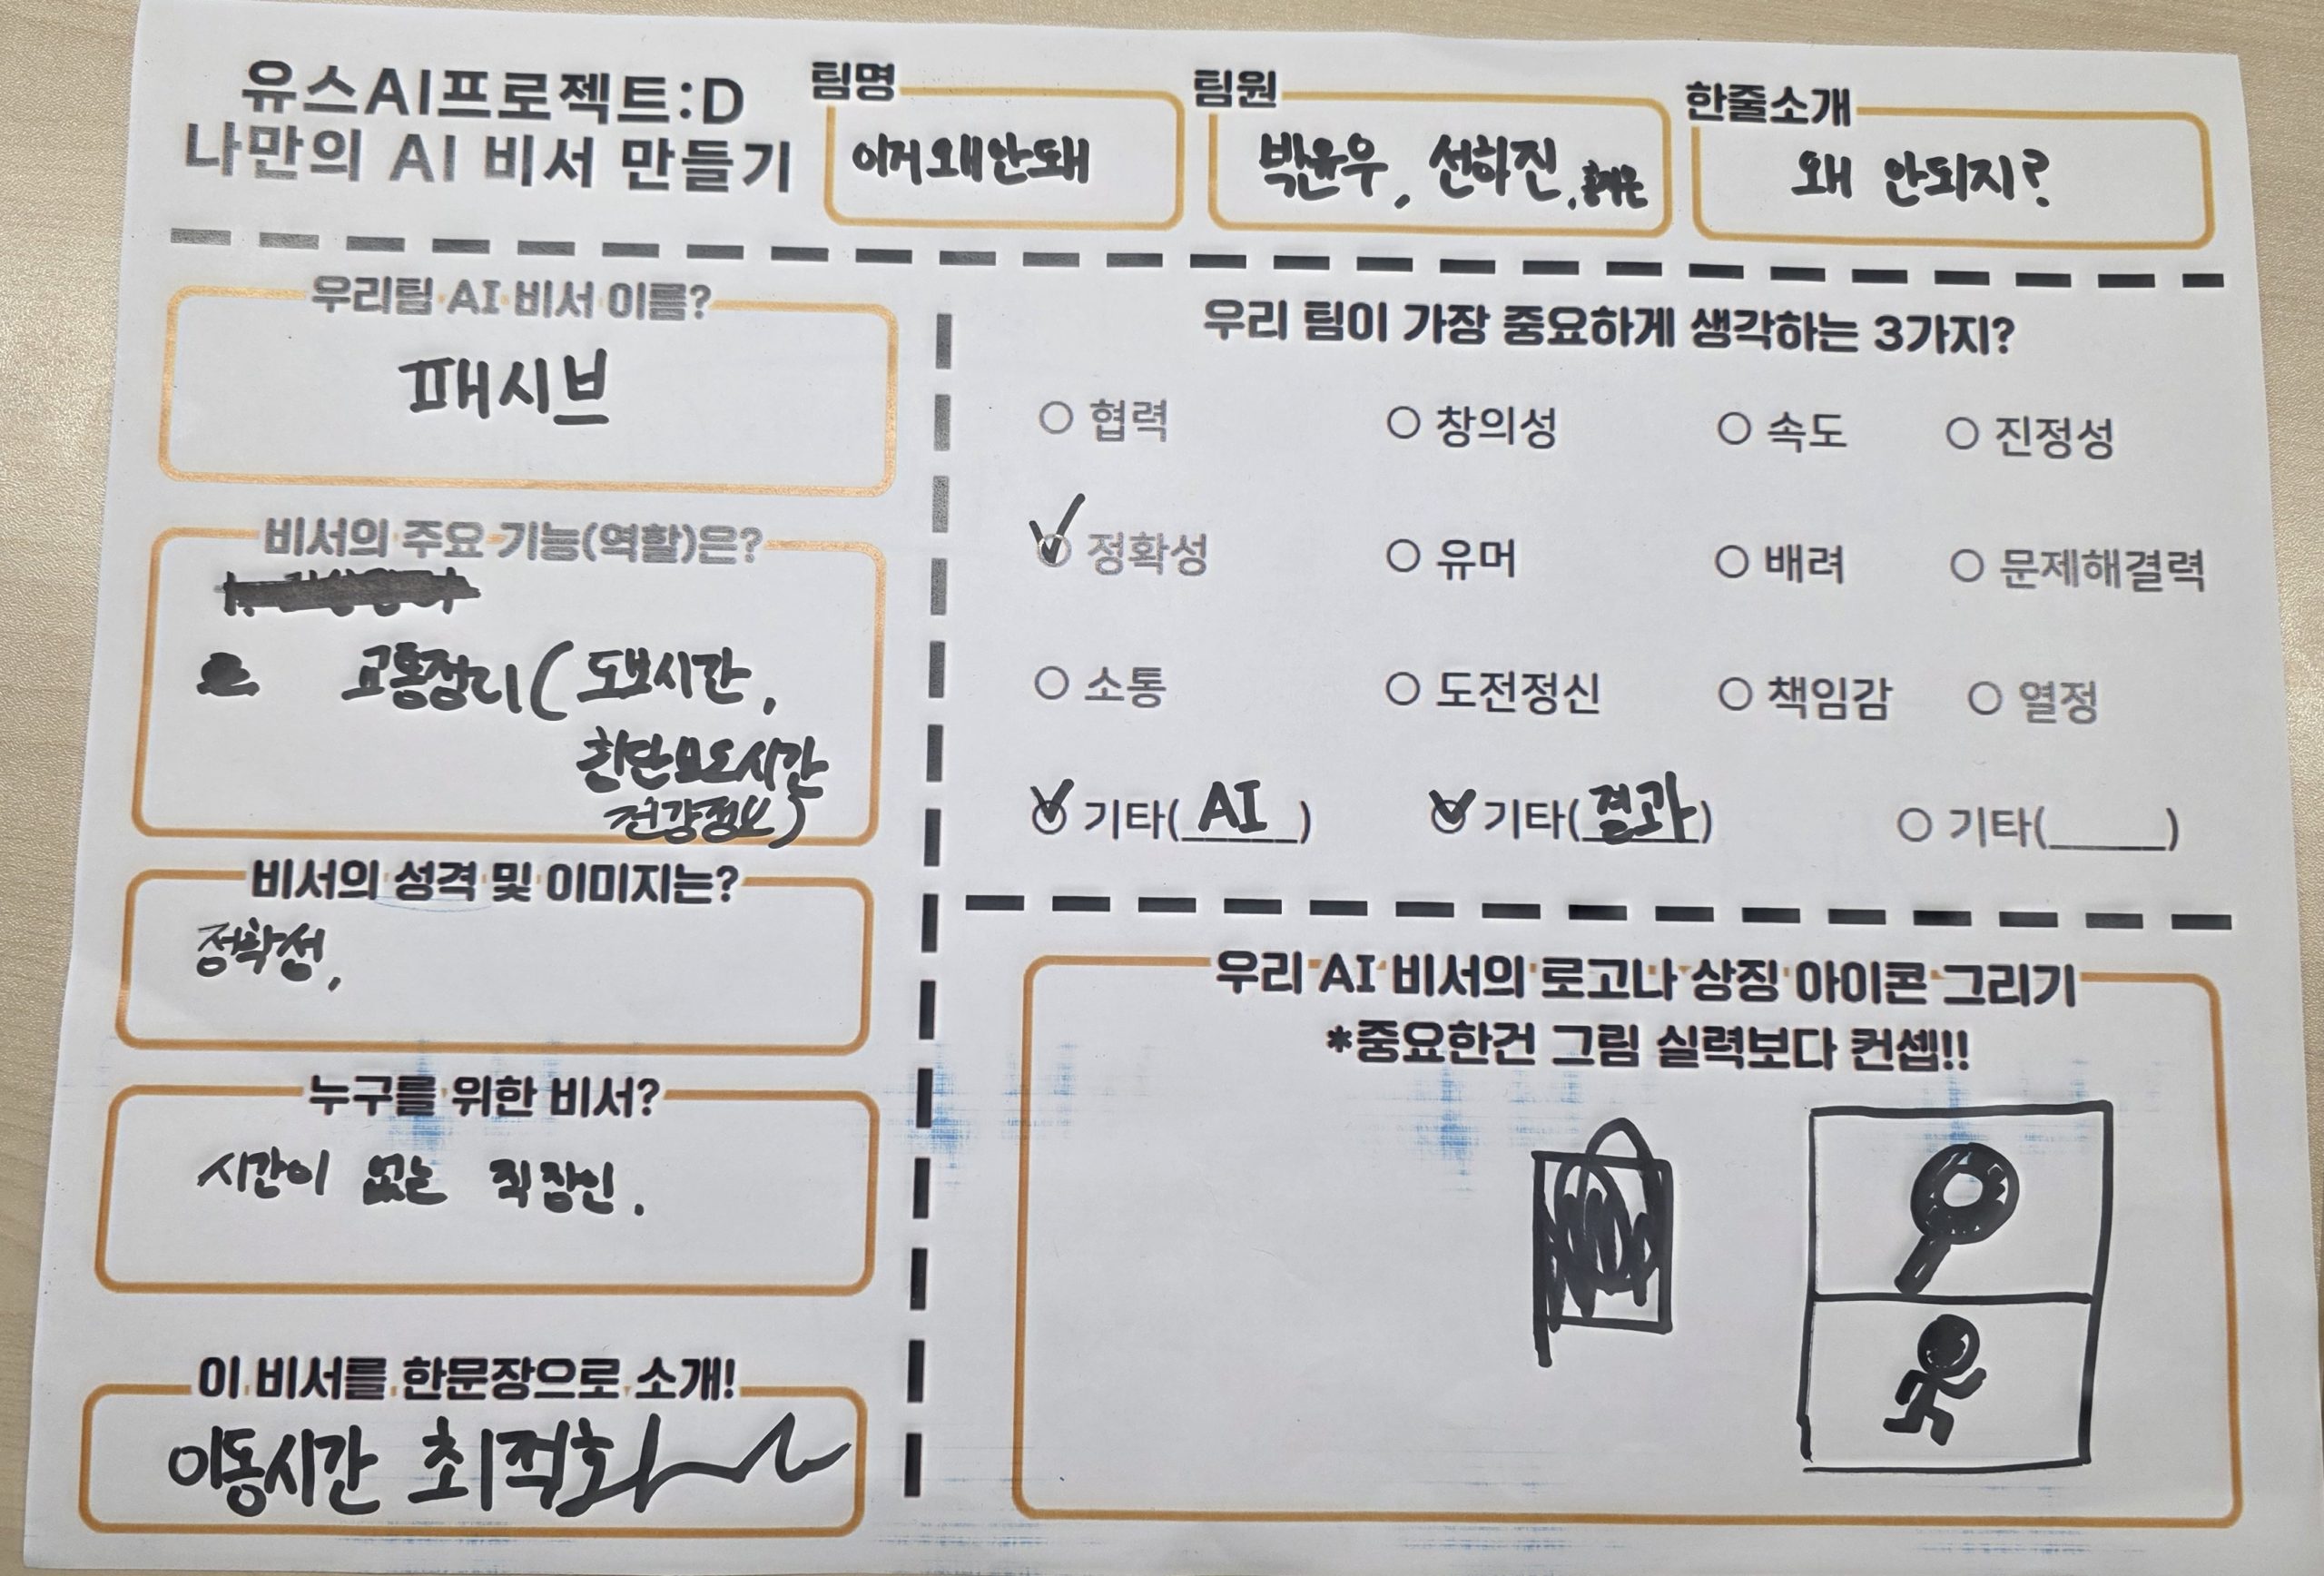 유스AI프로젝트:D
나만의 AI 비서 만들기
팀명
이거왜안돼
팀원
박윤우, 선하진,
한줄소개
왜 안되지?
우리팀 AI 비서 이름?
패시브
비서의 주요 기능(역할)은?
교통정리(도보시간,
횡단보도시간
건강정보)
비서의 성격 및 이미지는?
정확성,
누구를 위한 비서?
시간이 없는 직장인.
이 비서를 한문장으로 소개!
이동시간 최적화
우리 팀이 가장 중요하게 생각하는 3가지?
협력 창의성 속도 진정성
정확성 유머 배려 문제해결력
소통 도전정신 책임감 열정
기타(AI) 기타(결과) 기타(_____)
우리 AI 비서의 로고나 상징 아이콘 그리기
*중요한건 그림 실력보다 컨셉!!